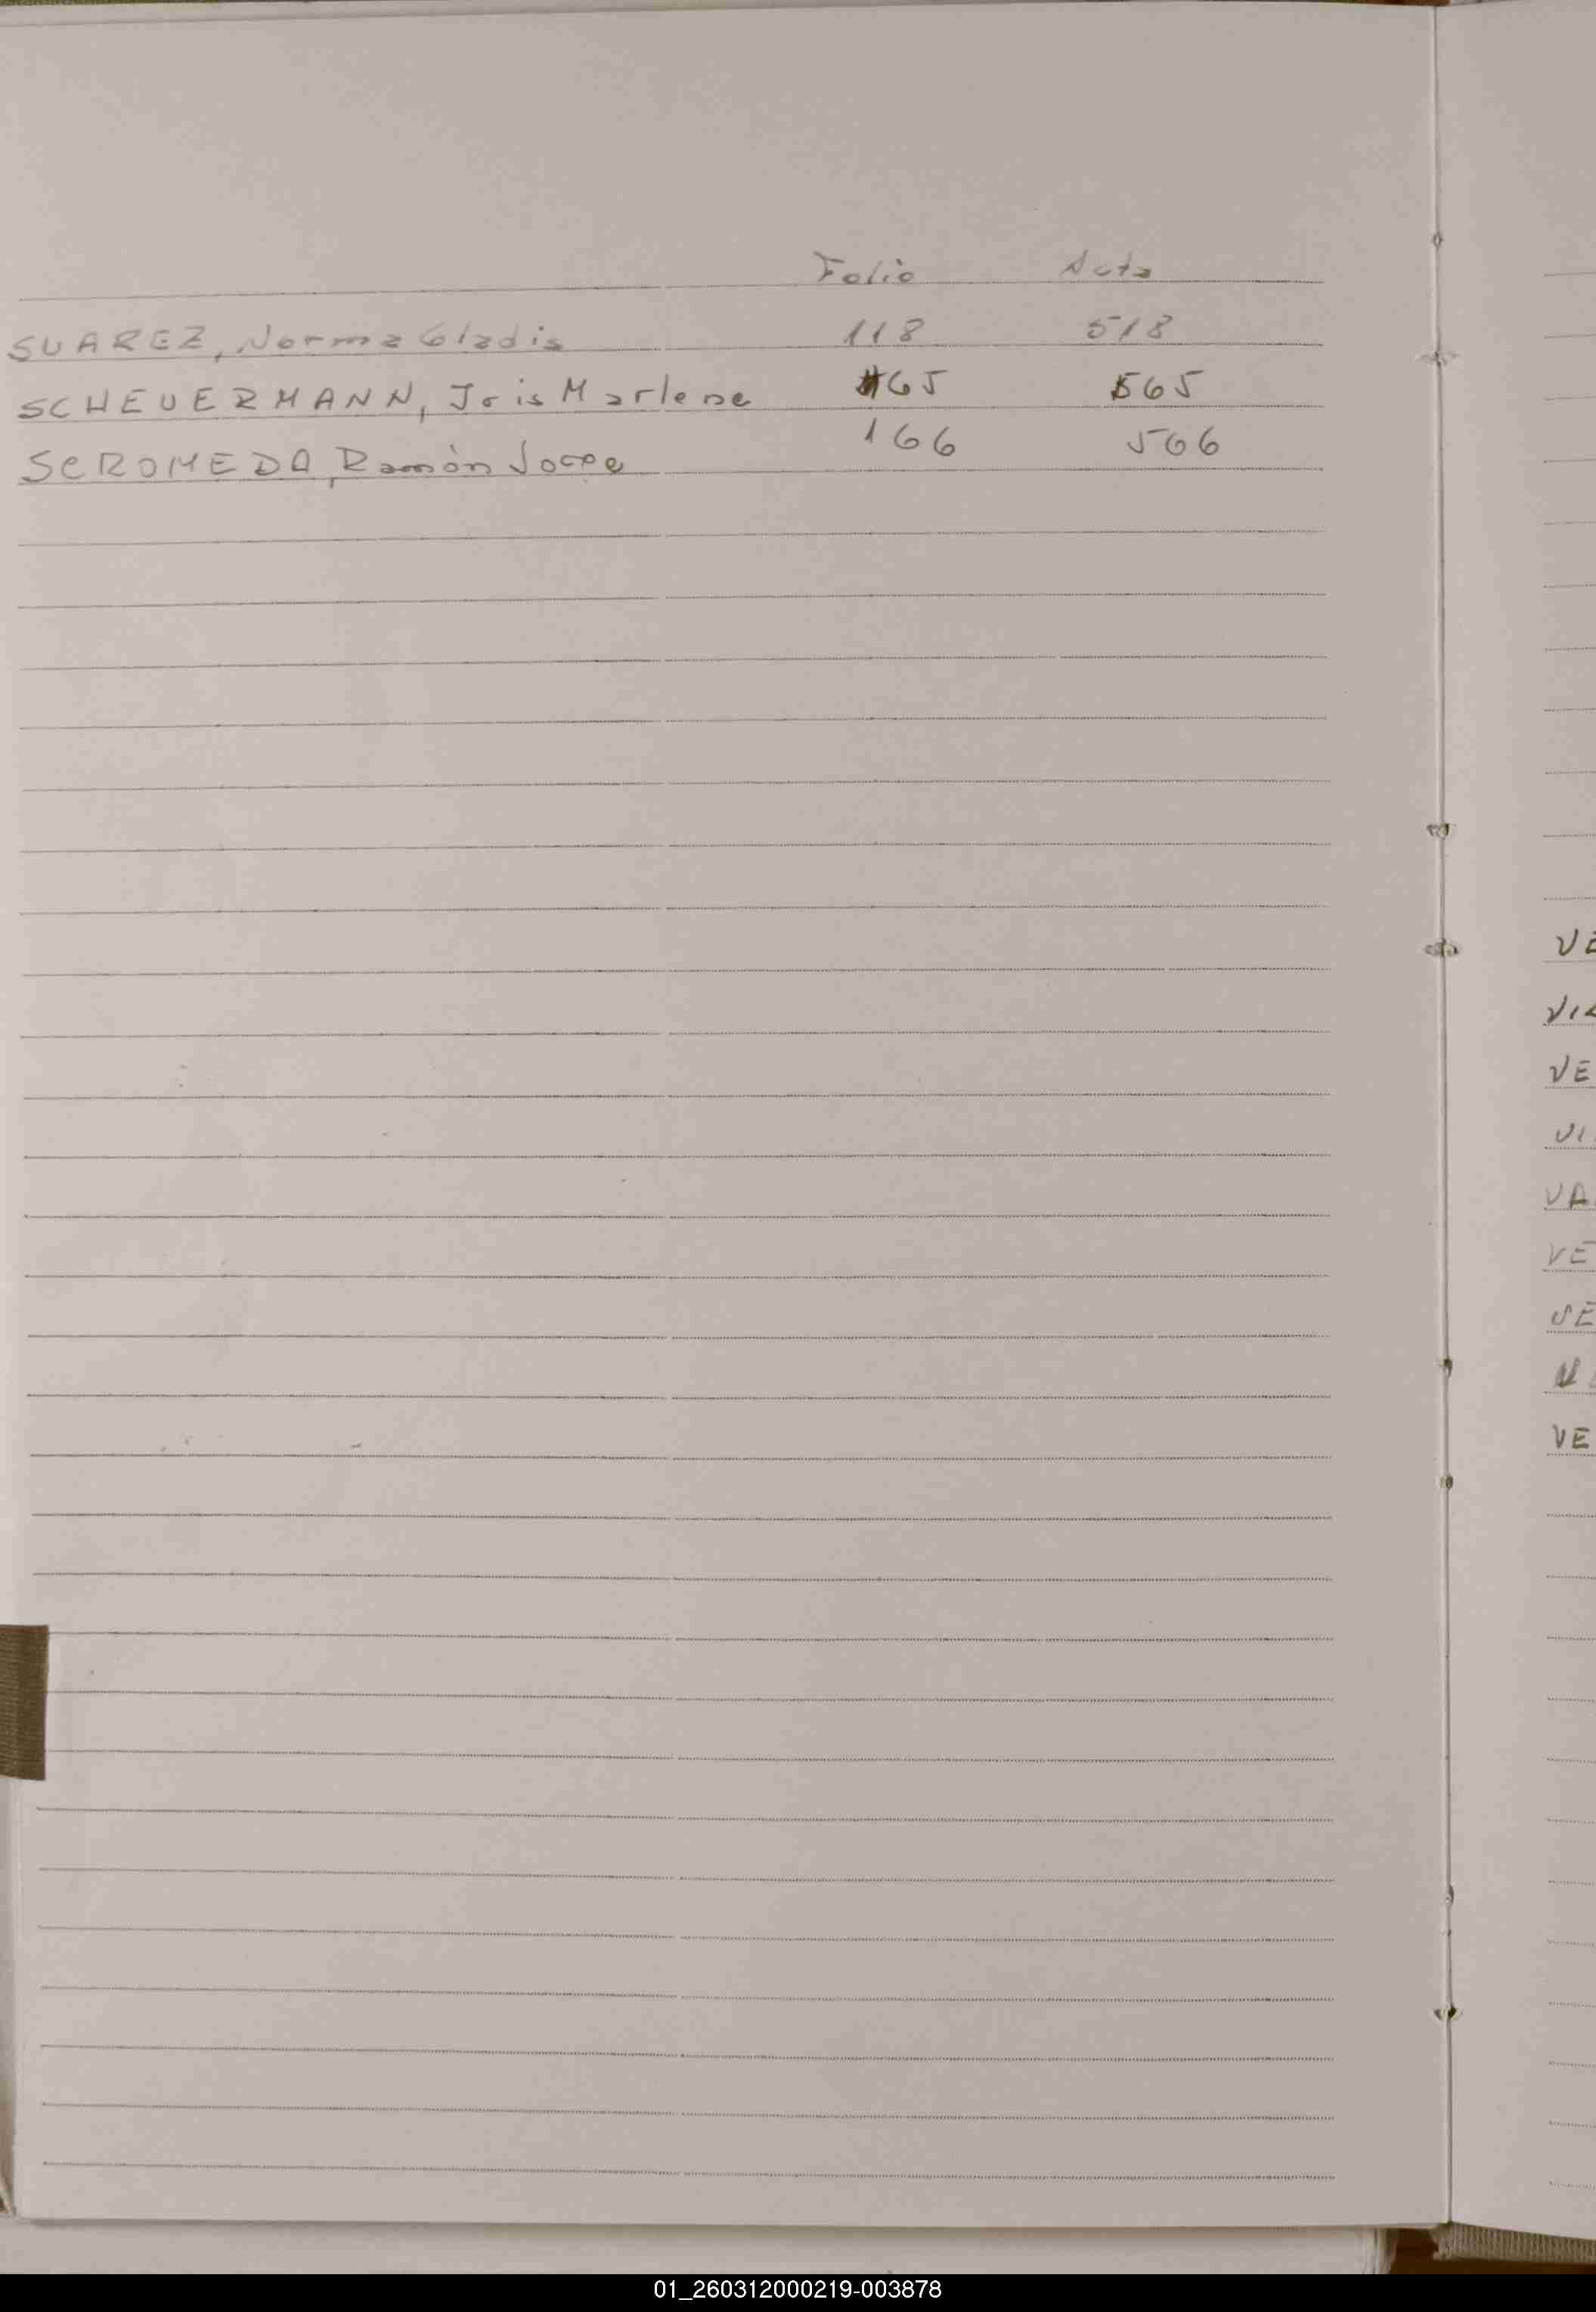 Folio Acta
SUAREZ, Norma Gladis 118 518
SCHEUERMANN, Iris Marlene 165 565
SCROMEDA, Ramón Jorge 166 566
VE
VI
VE
VI
VA
VE
VE
VE
01_260312000219-003878